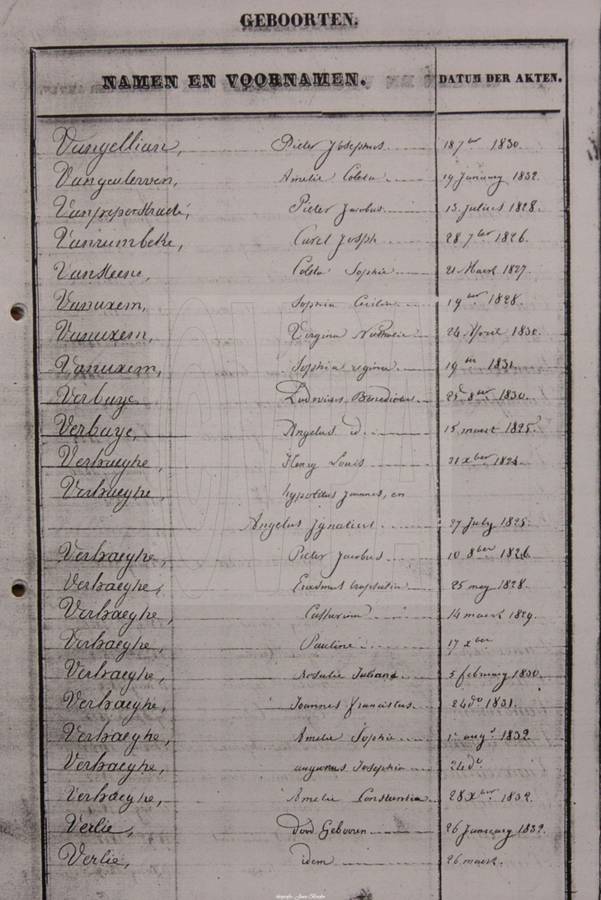 GEBOORTEN.
NAMEN EN VOORNAMEN. DATUM DER AKTEN.
Pieter Josephus 18 7ber 1830.
Amelie Coleta 19 January 1832.
Pieter Jacobus 13. julius 1828.
Vanrumbeke, Carel Joseph 28 7ber 1826.
VanSteene, Coleta Sophie 21 Maert 1827.
Vanuxem, Sophia Cicilia 1828.
Vanuxem, Virgina Nathalie 24. April 1830.
Vanuxem, Sophia regina 1831.
Verbaye Ludovicus Benedictus 8ber 1830.
Verbaye, Angelus id 15 maert 1825.
Verhaeghe, Henry Louis 21 xber 1824.
Verhaeghe, hypolitus joannes, en
Angelus Ignatius 27 July 1825.
Verhaeghe, Pieter Jacobus 10 8ber 1826.
Verhaeghe, 25 mey 1828.
Verhaeghe, 14 maert 1829.
Verhaeghe, Pauline 17 xber
Verhaeghe, Rosalie Juliana 5 february 1830.
Verhaeghe, Joannes franciscus 24 do 1831.
Verhaeghe, Amelie Sophie 1 augt. 1832.
Verhaeghe, Josephin 24 do
Verhaeghe, Amelie Constantia 28 xber 1832.
Verlie, Dood Gebooren 26 January 1832.
Verlie, idem 26 maert.